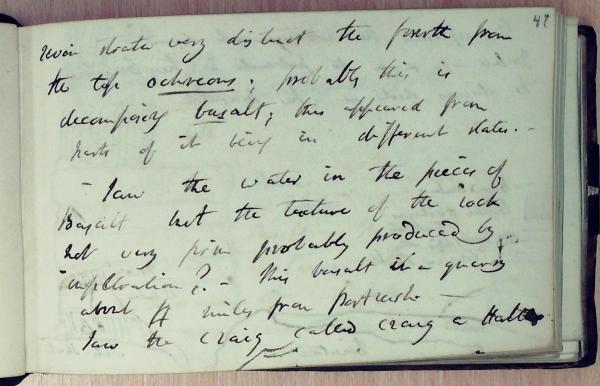 47
seven strata very distinct the fourth from
the top ochreous; probably this is
decomposing basalt; this appeared from
parts of it being in different states. -
- Saw the water in the pieces of
Basalt but the texture of the rock
not very firm probably produced by
infiltration? - This basalt is a quarry
about miles from Portrush -
Saw the craig called craig a